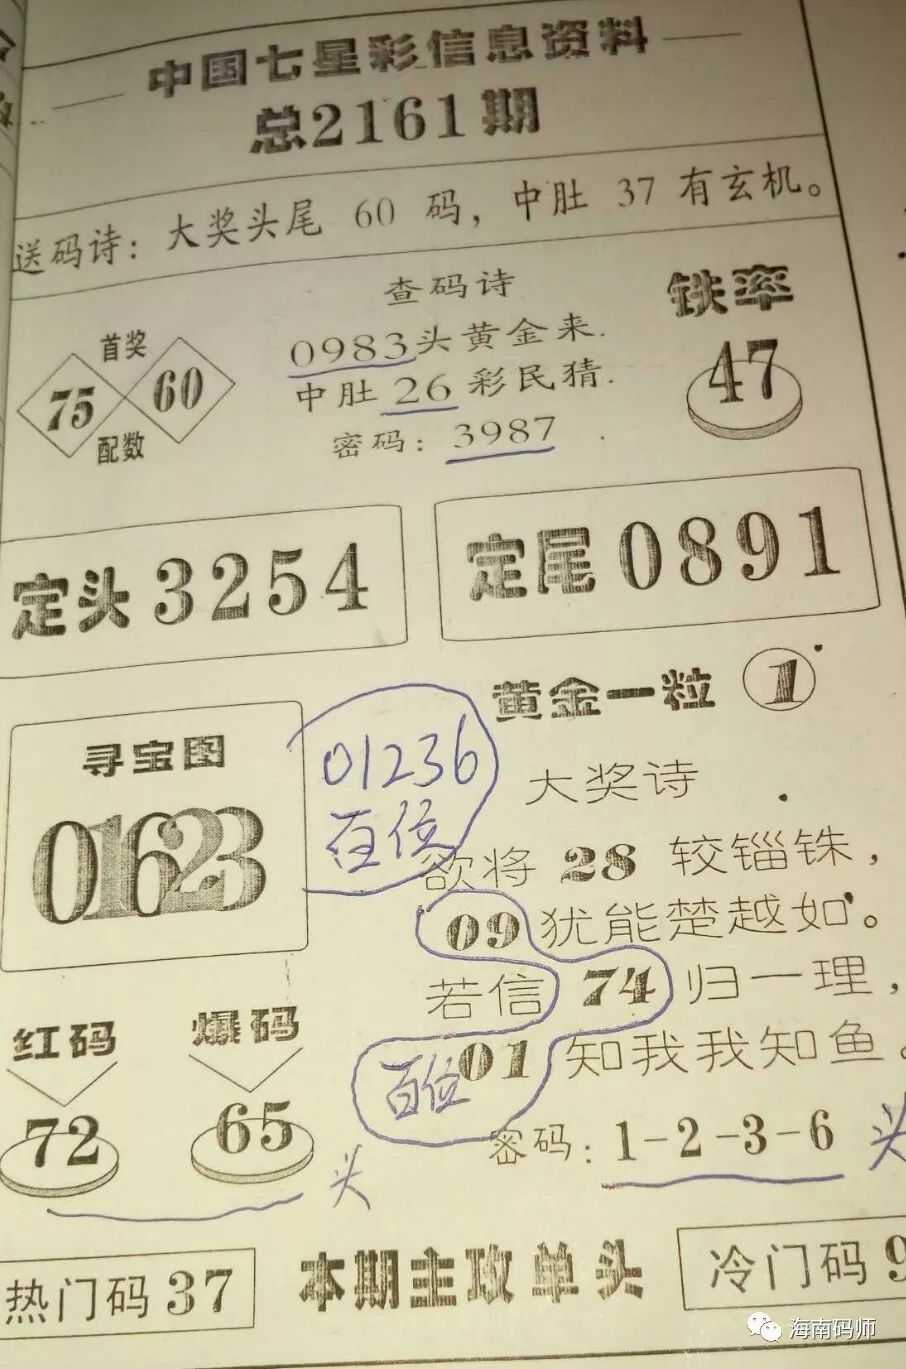 中国七星彩信息资料
总2161期
送码诗：大奖头尾 60 码，中肚 37 有玄机。
首奖
75 60
配数
查码诗
0983头黄金来.
中肚 26 彩民猜.
密码：3987
铁率
47
定头 3254
定尾 0891
寻宝图
01623
01236
百位
黄金一粒 1
大奖诗
欲将 28 较锱铢，
09 犹能楚越如。
若信 74 归一理，
01 知我我知鱼。
百位
密码：1-2-3-6
头
红码
72
爆码
65
头
热门码 37
本期主攻单头
冷门码 9
海南码师